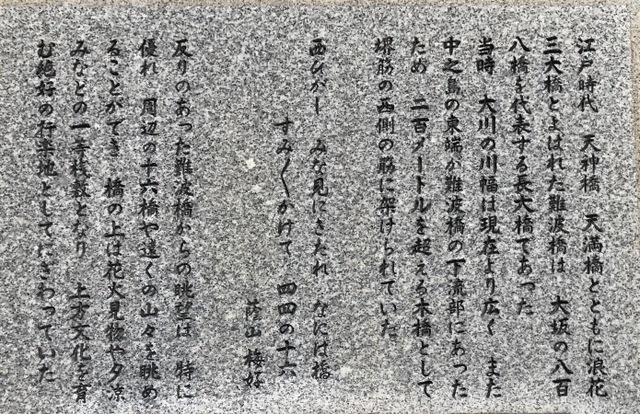 江戸時代 天神橋 天満橋とともに浪花
三大橋とよばれた難波橋は 大坂の八百
八橋を代表する長大橋であった
当時 大川の川幅は現在より広く また
中之島の東端が難波橋の下流部にあった
ため 二百メートルを超える木橋として
堺筋の西側の筋に架けられていた
西ひがし みな見にきたれ なには橋
すみ〳〵かけて 四四の十六
蔭山 梅好
反りのあった難波橋からの眺望は 特に
優れ 周辺の十六橋や遠くの山々を眺め
ることができ 橋の上は花火見物や夕涼
みなどの一等桟敷となり 上方文化を育
む絶好の行楽地としてにぎわっていた